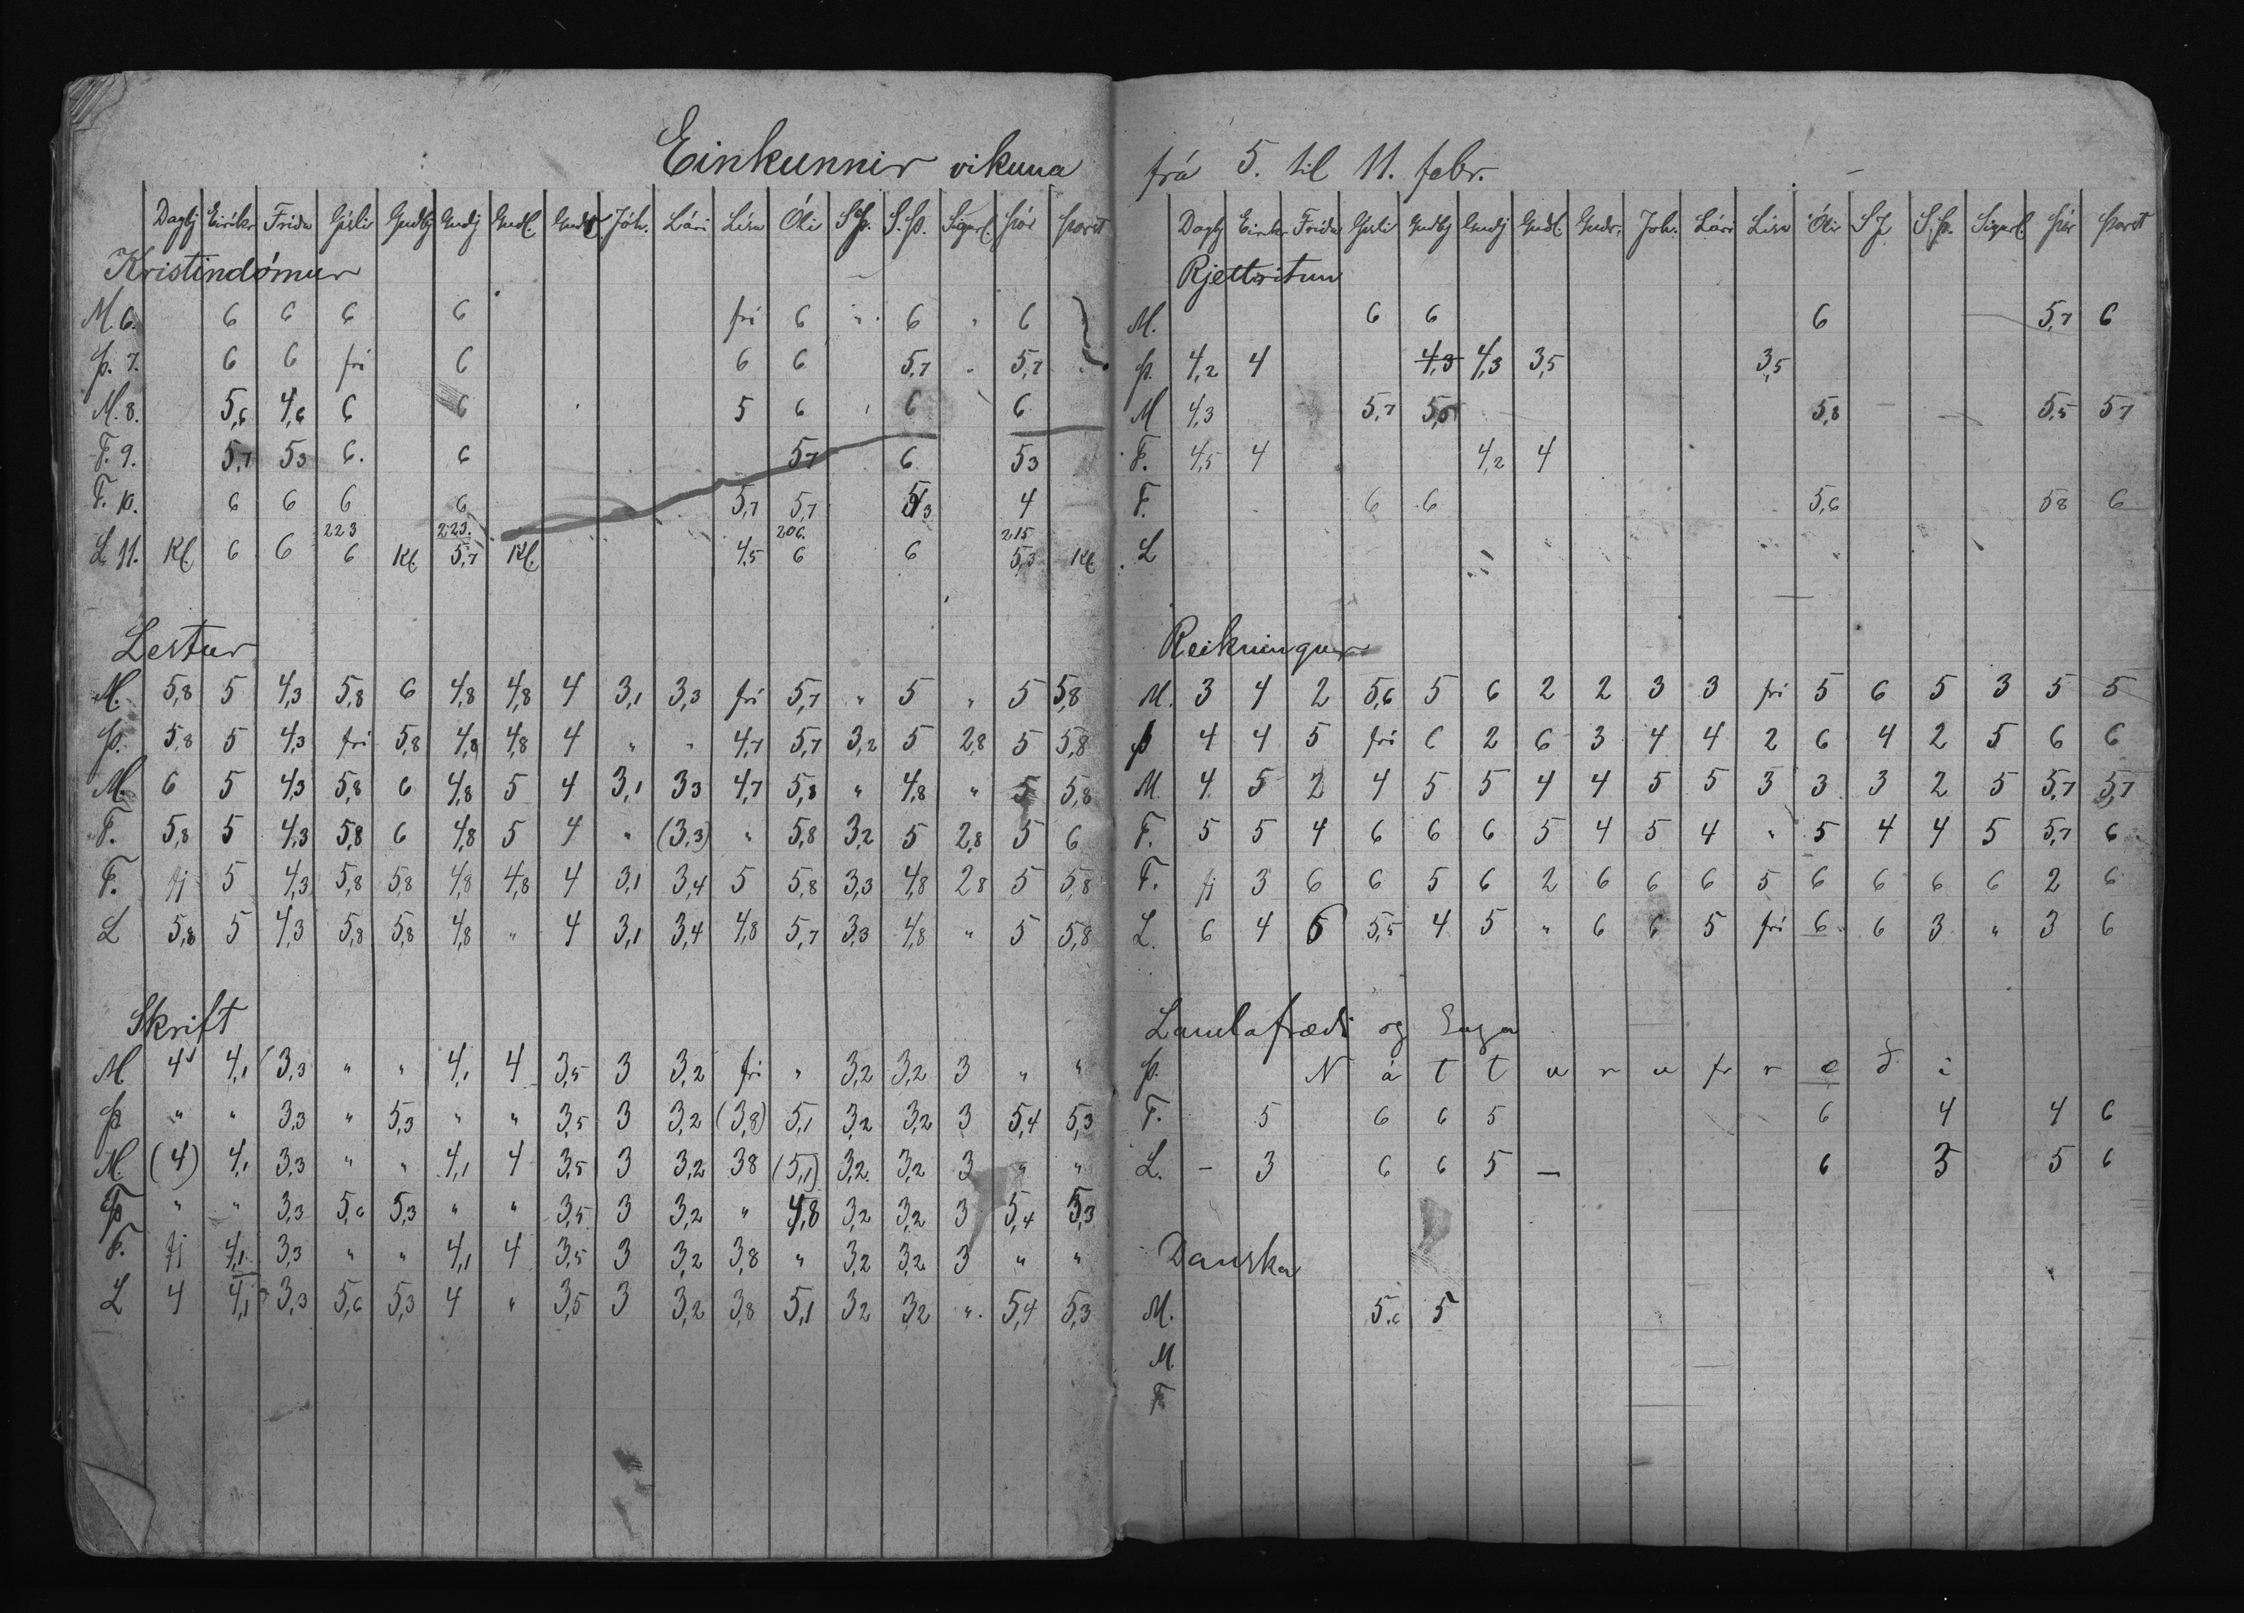 Einkunnir vikuna
Dagbj Eirikr Frida Gísli Gudbj Gudj Gudl. Gudr Jóh. Lári Lisa Óli S.Þ. Sigurl. Þór Þorst
Kristindómur
M. 6. 6 6 6 6 fri 6 " 6 " 6
Þ. 7. 6 6 fri 6 6 6 5,7 " 5,7
M. 8. 5,6 4,6 6 6 5 6 6 6
F. 9. 5,7 53 6. 6 57 6 53
F. 10. 6 6 6 6 5,7 5,7 4
223 223. 206. 215
L 11. Kl. 6 6 6 Kl. 5,7 Kl. 4,5 6 6 5,3 Kl
Lestur
M. 5,8 5 4,3 5,8 6 4,8 4,8 4 3,1 3,3 fri 5,7 " 5 " 5 5,8
Þ. 5,8 5 4,3 fri 5,8 4,8 4,8 4 " " 4,7 5,7 3,2 5 2,8 5 5,8
M. 6 5 4,3 5,8 6 4,8 5 4 3,1 33 4,7 5,8 " 4,8 " 5 5,8
F. 5,8 5 4,3 5,8 6 4,8 5 4 " (3,3) " 5,8 3,2 5 2,8 5 6
F. fj 5 4,3 5,8 5,8 4,8 4,8 4 3,1 3,4 5 5,8 3,3 4,8 2,8 5 5,8
L 5,8 5 4,3 5,8 5,8 4,8 " 4 3,1 3,4 4,8 5,7 3,3 4,8 " 5 5,8
Skrift
M 4 4,1 3,3 " " 4,1 4 3,5 3 3,2 fri " 3,2 3,2 3 " "
Þ " " 3,3 " 5,3 " " 3,5 3 3,2 (3,8) 5,1 3,2 3,2 3 5,4 5,3
M. (4) 4,1 3,3 " " 4,1 4 3,5 3 3,2 38 (5,1) 3,2 3,2 3 " "
" " 3,3 5,6 5,3 " " 3,5 3 3,2 " 4,8 3,2 3,2 3 5,4 5,3
F. fj 4,1 3,3 " " 4,1 4 3,5 3 3,2 3,8 " 3,2 3,2 3 " "
L 4 4,1 3,3 5,6 5,3 4 " 3,5 3 3,2 3,8 5,1 32 32 " 5,4 5,3
frá 5. til 11. febr.
Dagbj Eirikr Frida Gísli Gudbj Gudj Gudl. Gudr. Joh. Lári Lisa Óli S J S. Þ. Sigurl. Þór Þorst
Rjettritun
M. 6 6 6 5,7 6
Þ. 4,2 4 4,3 4,3 3,5 3,5
M 4,3 5,7 5,8 5,5 57
F. 4,5 4 4,2 4
F. 6 6 5,6 58 6
L
Reikningur
M. 3 4 2 5,6 5 6 2 2 3 3 fri 5 6 5 3 5 5
Þ 4 4 5 fri 6 2 6 3 4 4 2 6 4 2 5 6 6
M 4 5 2 4 5 5 4 4 5 5 3 3 3 2 5 5,7 5,7
F. 5 5 4 6 6 6 5 4 5 4 " 5 4 4 5 5,7 6
F. fj 3 6 6 5 6 2 6 6 6 5 6 6 6 6 2 6
L. 6 4 6 5,5 4 5 " 6 6 5 fri 6 6 3 " 3 6
Landafrædi og Saga
Þ. N á t t u r u f r æ d i
F. 5 6 6 5 6 4 4 6
L. – 3 6 6 5 – 6 3 5 6
Danska
M. 5,6 5
M.
F.